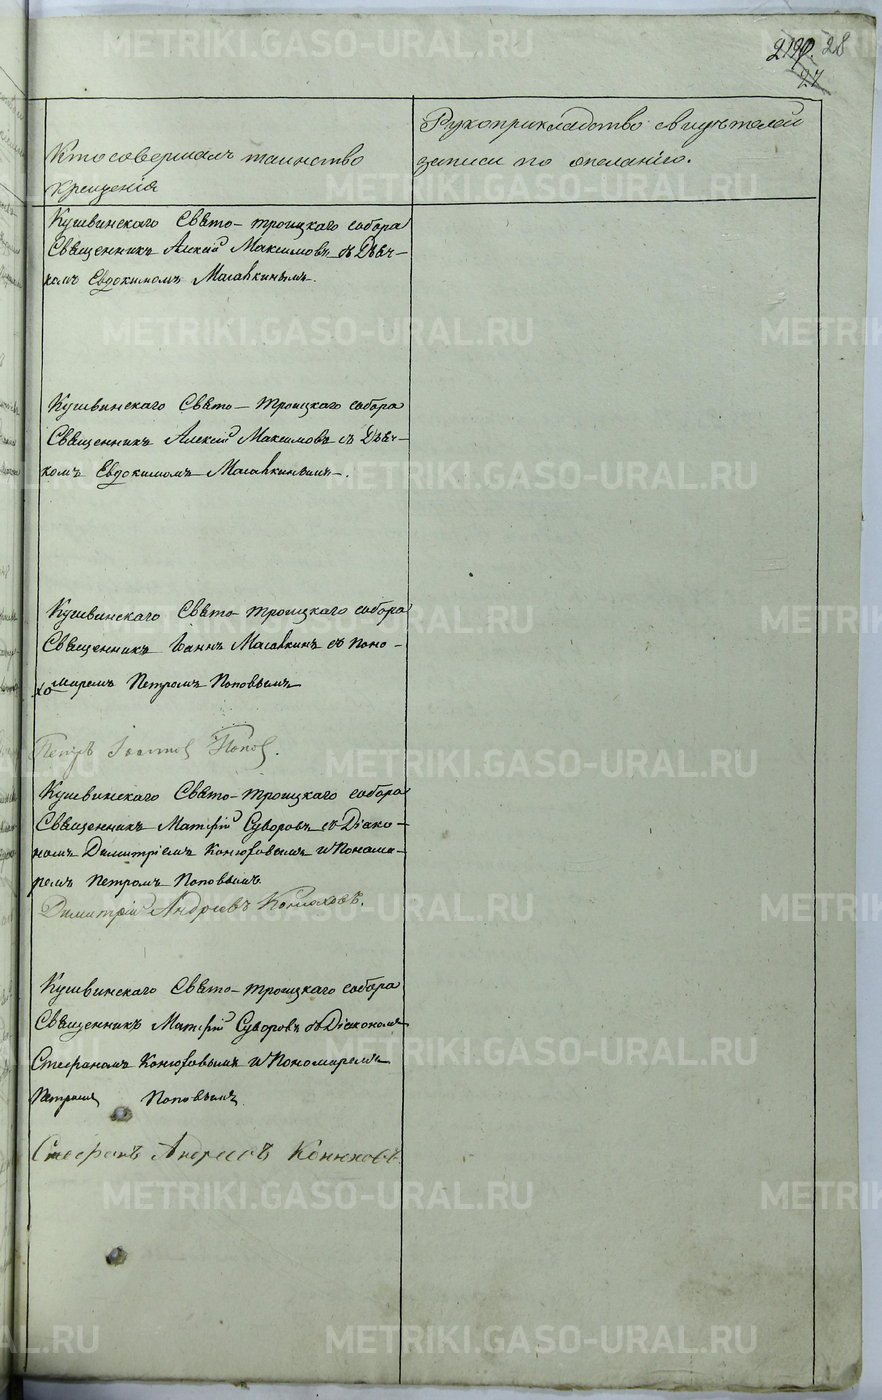 28
27
Кто совершалъ таинство
крещенія
Рукоприкладство свидѣтелей
записи по желанію.
Кушвинскаго Свято-Троицкаго собора
Священникъ Алексій Максимовъ съ Дьяч-
комъ Евдокимомъ Масавкинымъ.
Кушвинскаго Свято-Троицкаго собора
Священникъ Алексій Максимовъ съ Дьяч-
комъ Евдокимомъ Масавкинымъ.
Кушвинскаго Свято-Троицкаго собора
Священникъ Іоаннъ Масавкинъ съ Поно-
маремъ Петромъ Поповымъ
Петръ Іоаннов Попов.
Кушвинскаго Свято-Троицкаго собора
Священникъ Матфій Суворовъ съ Діако-
номъ Димитріемъ Конюховымъ и Понома-
ремъ Петромъ Поповымъ.
Димитрій Андреевъ Конюховъ.
Кушвинскаго Свято-Троицкаго собора
Священникъ Матфій Суворовъ съ Діакономъ
Стефаномъ Конюховымъ и Пономаремъ
Петромъ Поповымъ.
Стефанъ Андреевъ Конюховъ.
METRIKI.GASO-URAL.RU